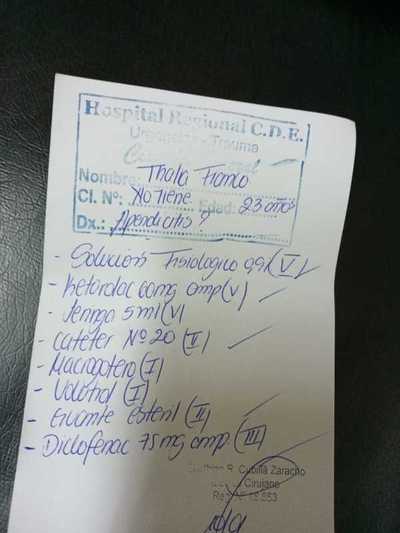 Hospital Regional C.D.E.
Urgencias - Trauma
Nombre: Thalia Franco
CI. Nº: No Tiene Edad: 23 años
Dx.: Apendicitis?
- Solución Fisiologico 0,9% (V)
- Ketorolac 60mg amp (V)
- Jeringa 5ml (V)
- Catéter Nº 20 (II)
- Macrogotero (I)
- Volutrol (I)
- Guante esteril (II)
- Diclofenac 75mg amp. (III)
R. Cubilla Zaracho
Cirujano
Reg. Nº